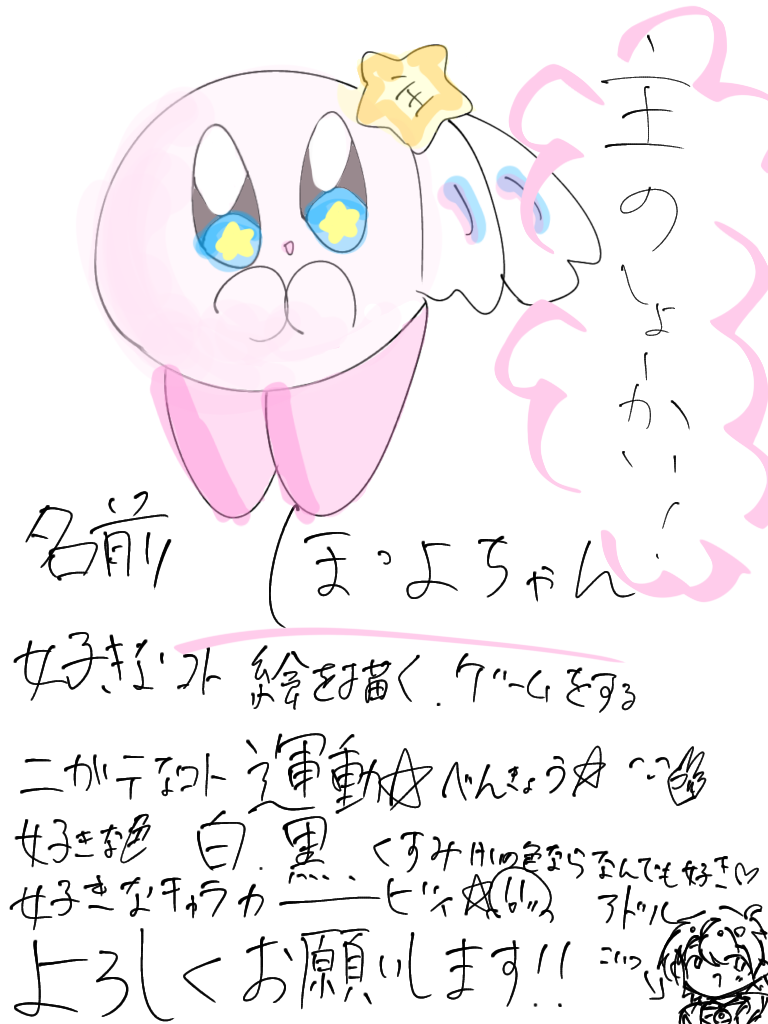 主のしょーかい!
名前 ほっよちゃん
好きなコト 絵を描く.ゲームをする
ニガテなコト 運動☆べんきょう☆
好きな色 白.黒.くすみ系の色ならなんでも好き♡
好きなキャラ カービィ☆ アドル
こいつ
よろしくお願いします!!